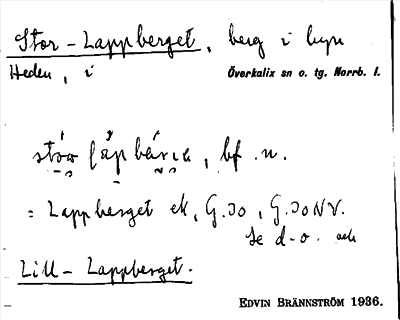 Stor-Lappberget, berg i byn
Heden, i Överkalix sn o. tg. Norrb. l.
bf. n.
= Lappberget ek, G.30, G.30NV.
Se d.o. och
Lill-Lappberget.
EDVIN BRÄNNSTRÖM 1936.